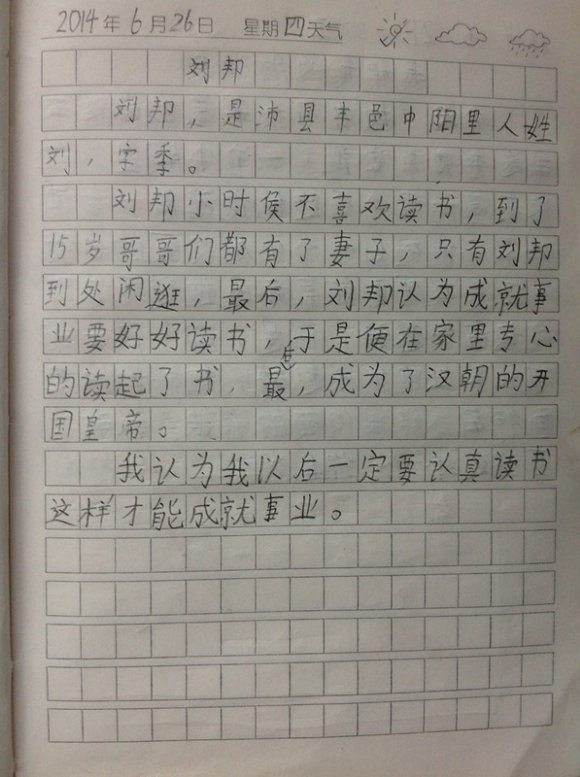 2014年6月26日 星期四天气
刘邦
刘邦,是沛县丰邑中阳里人姓
刘,字季。
刘邦小时侯不喜欢读书,到了
15岁哥哥们都有了妻子,只有刘邦
到处闲逛,最后,刘邦认为成就事
业要好好读书,于是便在家里专心
的读起了书,最后,成为了汉朝的开
国皇帝。
我认为我以后一定要认真读书
这样才能成就事业。